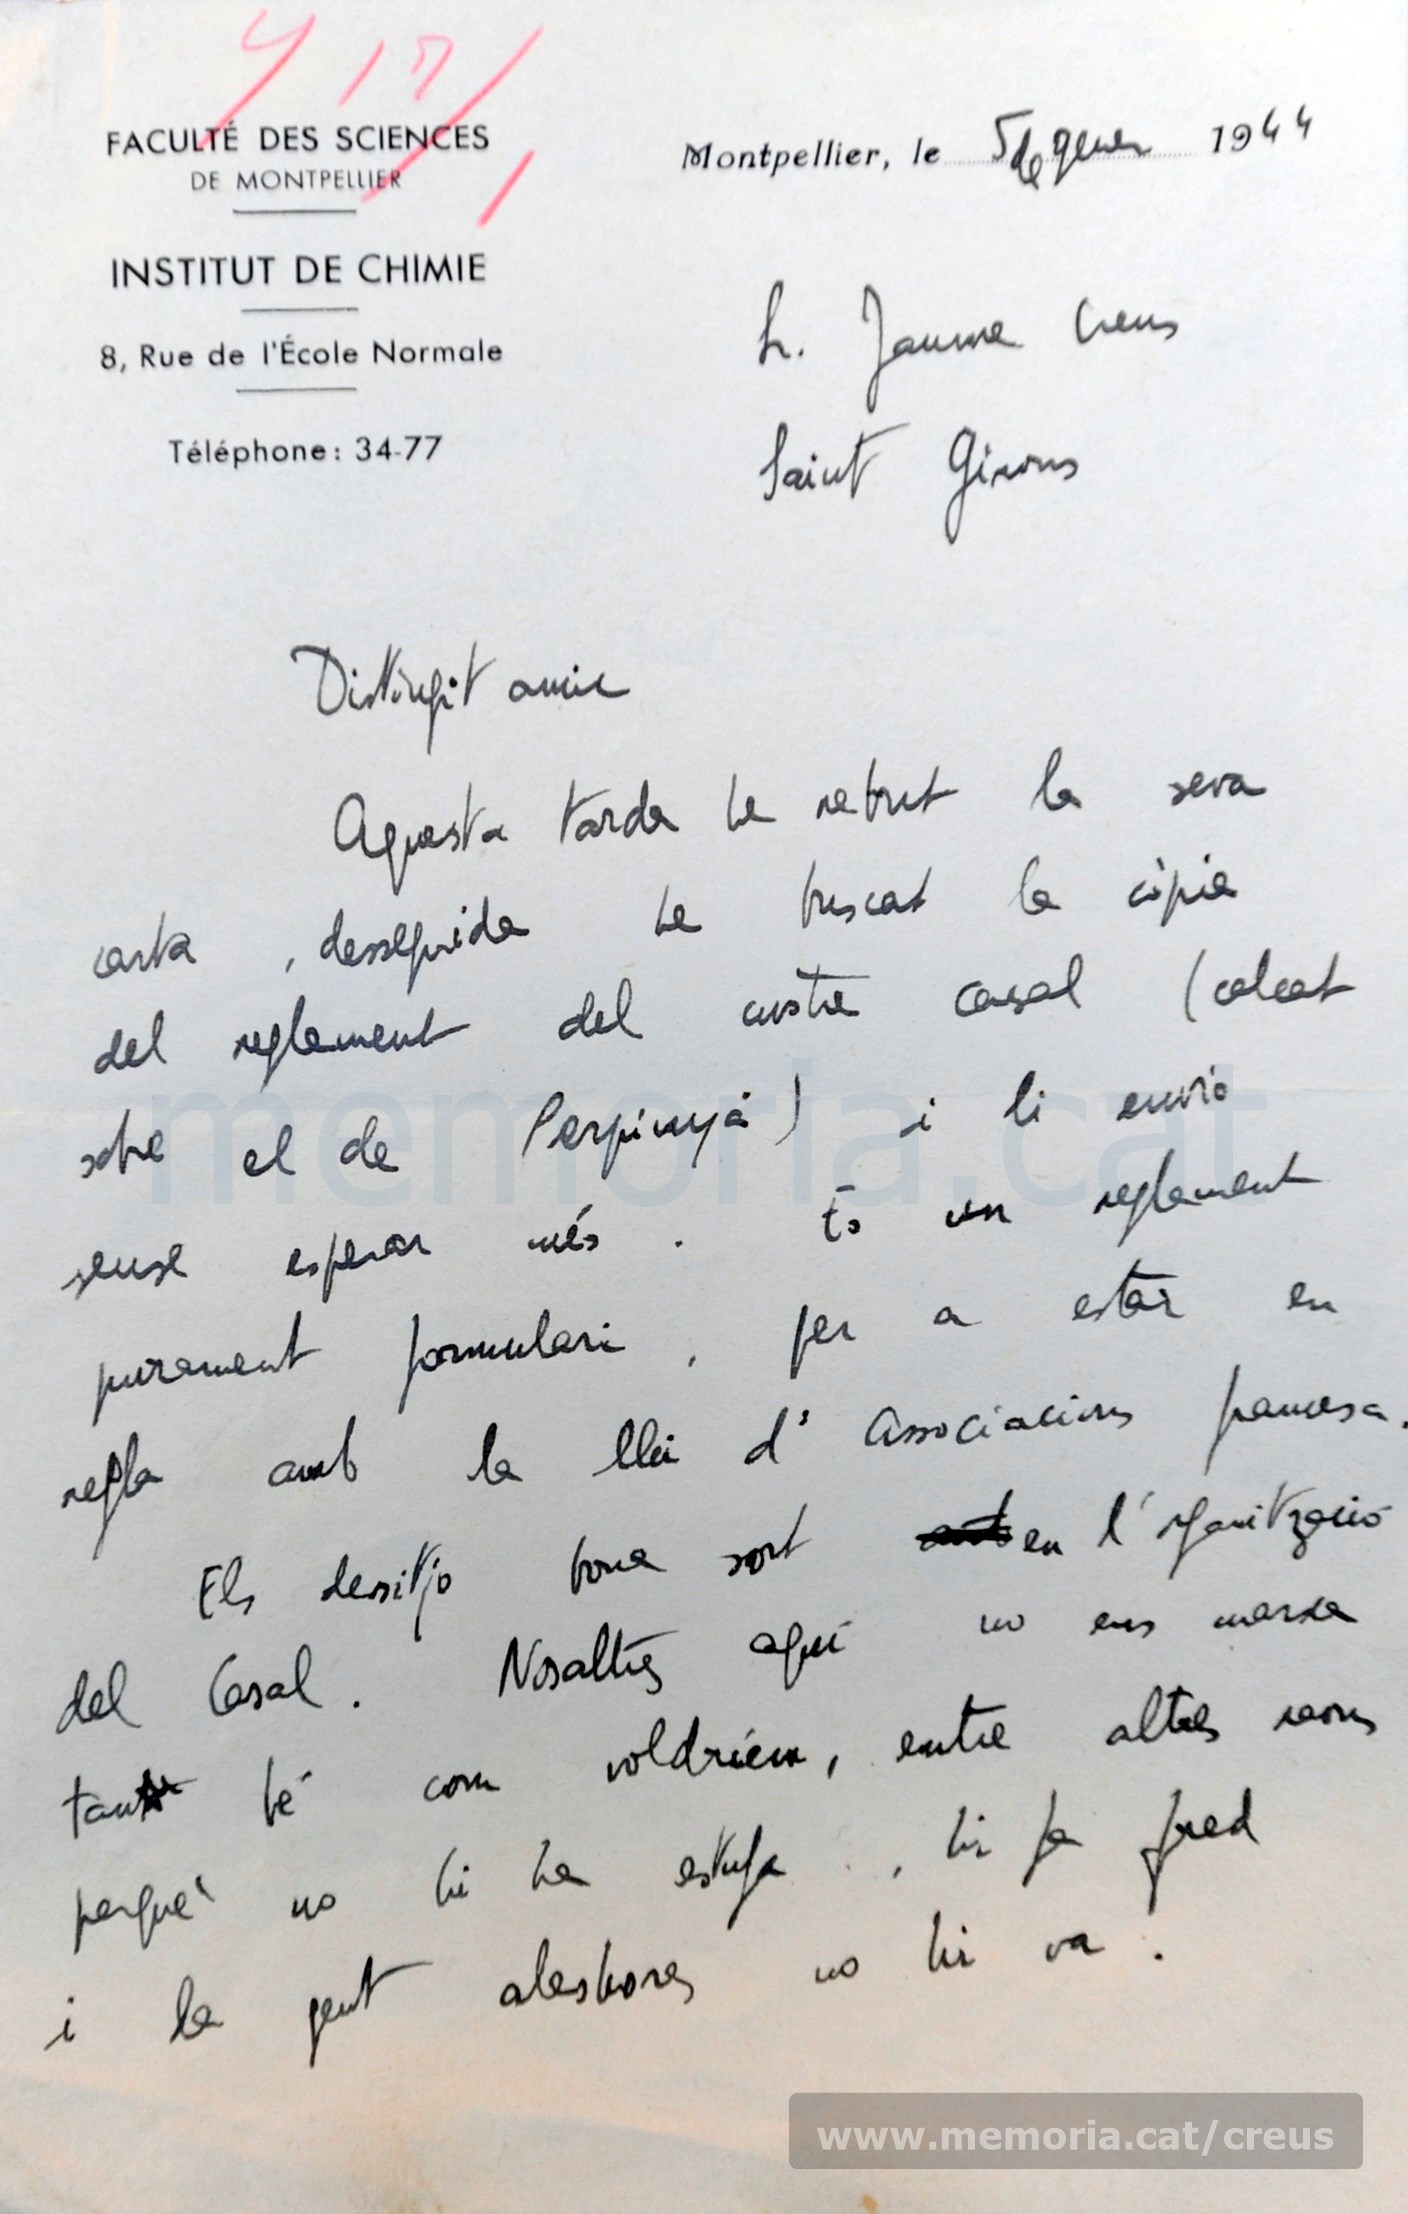 FACULTÉ DES SCIENCES
DE MONTPELLIER
INSTITUT DE CHIMIE
8, Rue de l'École Normale
Téléphone: 34-77
Montpellier, le 5 de gener 1944
Sr. Jaume Creus
Saint Girons
Distingit amic
Aquesta tarda he rebut la seva
carta, desseguida he buscat la còpia
del reglement del nostre casal (calcat
sobre el de Perpinyà) i li envio
sense esperar més. És un reglement
purament formulari, per a estar en
regla amb la llei d'Associacions francesa.
Els dessitjo bona sort en l'organització
del Casal. Nosaltres aquí no ens marxa
tant bé com voldríem, entre altres raons
perquè no hi ha estufa, hi fa fred
i la gent aleshores no hi va.
memoria.cat
www.memoria.cat/creus